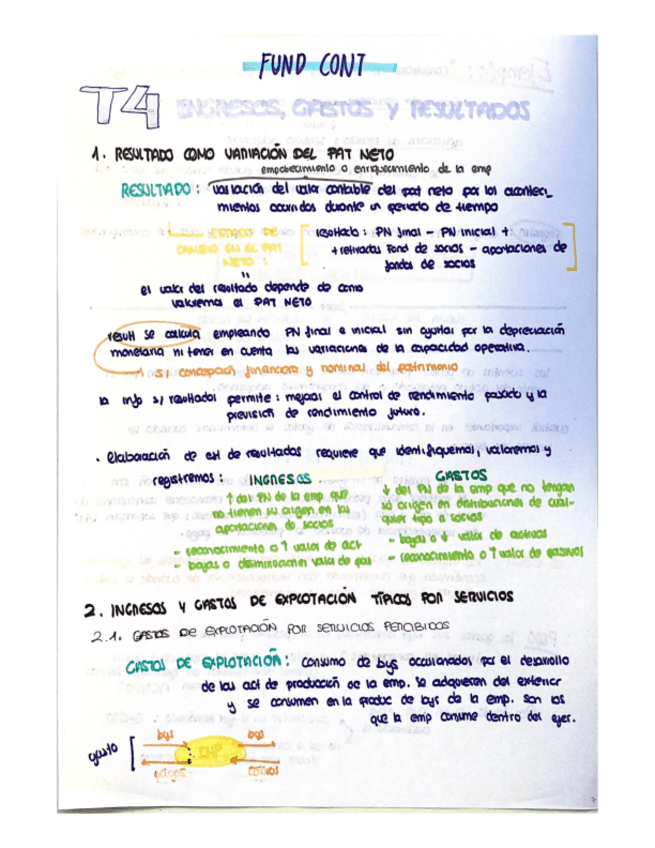 FUND CONT
T4 INGRESOS, GASTOS Y RESULTADOS
1. RESULTADO COMO VARIACIÓN DEL PAT NETO
empobrecimiento o enriquecimiento de la emp
RESULTADO: variación del valor contable del pat neto por los aconteci_
mientos ocurridos durante un periodo de tiempo
ESTADO DE
CAMBIO EN EL PAT
NETO:
resultado: PN final - PN inicial +
+ retiradas fond de socios - aportaciones de
fondos de socios
"
el valor del resultado depende de como
valoremos el PAT NETO
result se calcula empleando PN final e inicial sin ajustar por la depreciación
monetaria ni tener en cuenta las variaciones de la capacidad operativa.
s/ concepción financiera y nominal del patrimonio
la info s/ resultados permite: mejorar el control de rendimiento pasado y la
previsión de rendimiento futuro.
· Elaboración de est de resultados requiere que identifiquemos, valoremos y
registremos:
INGRESOS
↑ del PN de la emp que
no tienen su origen en las
aportaciones de socios
- reconocimiento o ↑ valor de act
- bajas o disminuciones valor de pas
GASTOS
↓ del PN de la emp que no tengan
su origen en distribuciones de cual-
quier tipo a socios
- bajas o ↓ valor de activos
- reconocimiento o ↑ valor de pasivos
2. INGRESOS Y GASTOS DE EXPLOTACIÓN TÍPICOS POR SERVICIOS
2.1. GASTOS DE EXPLOTACIÓN POR SERVICIOS PERCIBIDOS
GASTOS DE EXPLOTACIÓN: consumo de bys ocasionados por el desarrollo
de las act de producción de la emp. Se adquieren del exterior
y se consumen en la produc de bys de la emp. Son los
que la emp consume dentro del ejer.
gasto
bys
bys
EMP
pagos
cobros